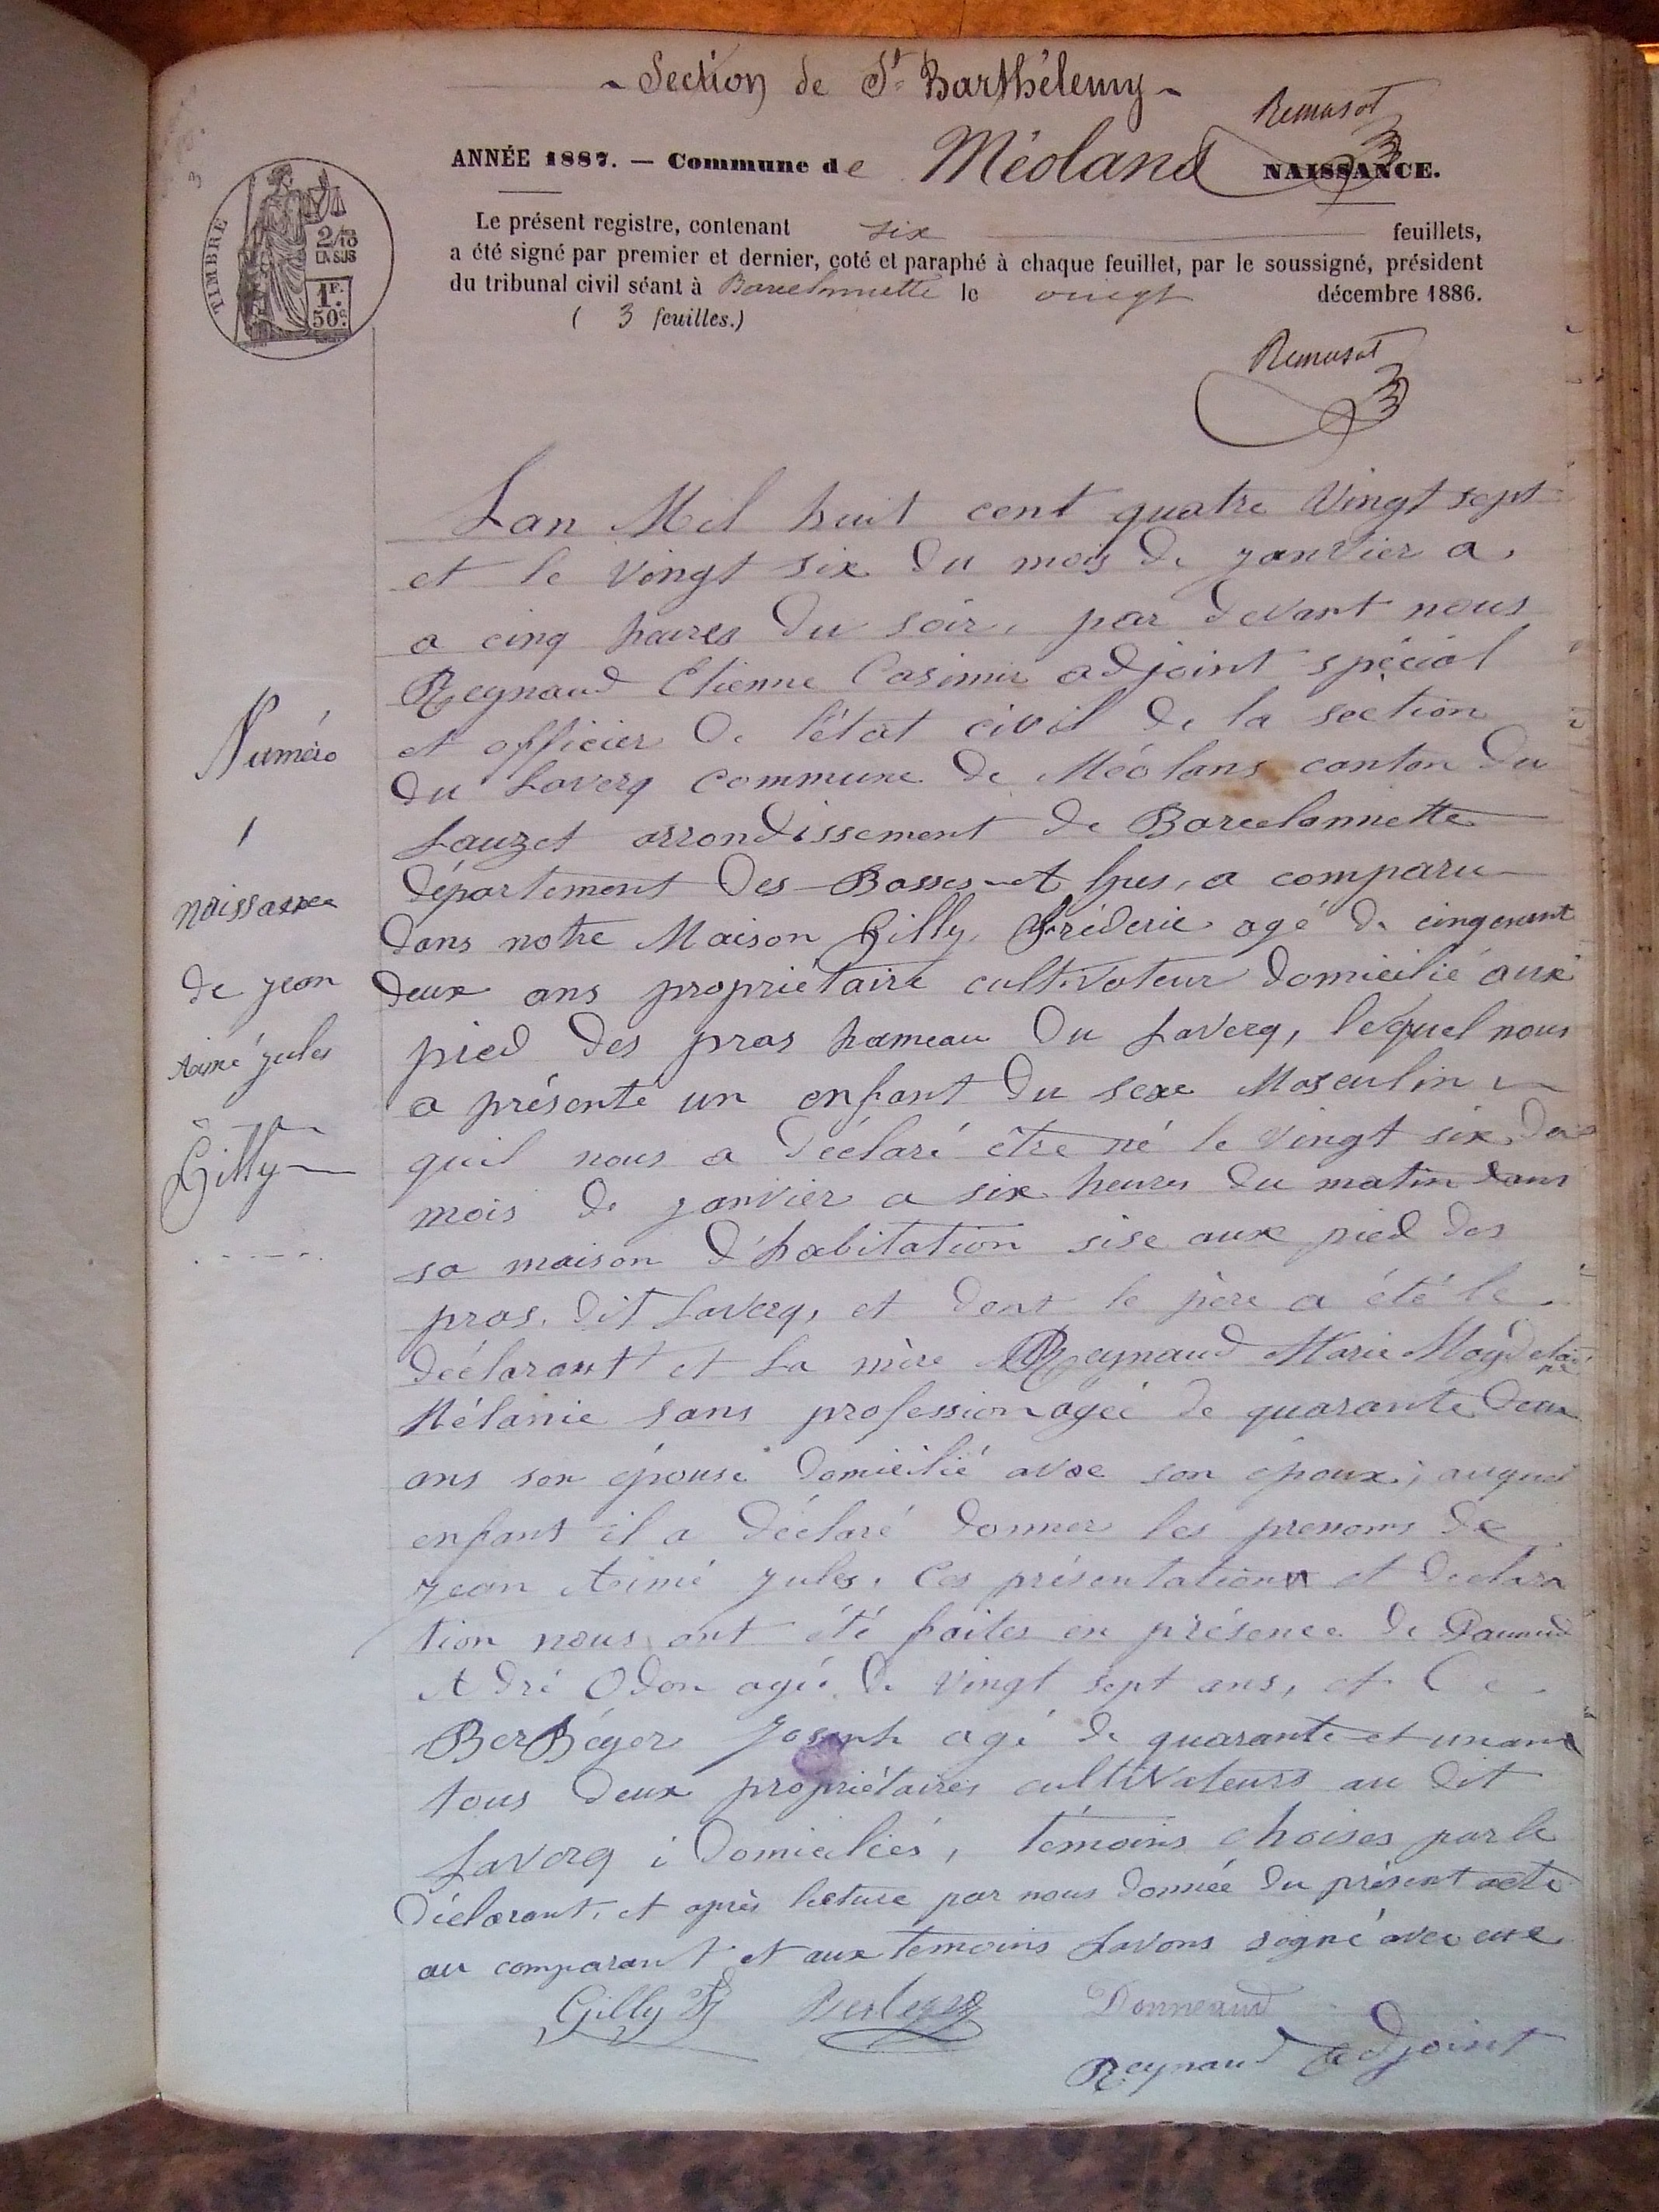 - Section de St Barthélemy -
Remusat
ANNÉE 1887. — Commune de Méolans NAISSANCE.
Le présent registre, contenant six feuillets,
a été signé par premier et dernier, coté et paraphé à chaque feuillet, par le soussigné, président
du tribunal civil séant à Barcelonnette le vingt décembre 1886.
( 3 feuilles.)
Remusat
TIMBRE
2/10
EN SUS
1F.
50c.
Lan Mil huit cent quatre Vingt sept
et le vingt six du mois de janvier a
a cinq heures du soir, par devant nous
Reynaud Etienne Casimir adjoint spécial
et officier de l'état civil de la section
du Laverq commune de Méolans canton du
Lauzet arrondissement de Barcelonnette
département des Basses-Alpes, a comparu
dans notre Maison Gilly Fréderic agé de cinquant
deux ans propriétaire cultivateur domicilié aux
pied des pras hameau du Laverq, lequel nous
a présenté un enfant du sexe Masculin
quil nous a déclaré être né le vingt six du
mois de janvier a six heures du matin dans
sa maison d'habitation sise aux pied des
pras, dit Laverq, et dont le père a été le
déclarant et La mère Reynaud Marie Magdelaine
Mélanie sans profession agée de quarante deux
ans son épouse domicilié avec son époux, auquel
enfant il a déclaré donner les prenoms de
jean Aimé jules. Ces présentation et declara
tion nous ont été faites en présence de
Odon agé de vingt sept ans, et de
Berbéyer Joseph agé de quarante et un ans
tous deux propriétaires cultivateurs au dit
Laverq i domiciliés, témoins choises par le
déclarant, et après lecture par nous donnée du présent acte
au comparant et aux temoins Lavons signé avec eux
Gilly Donneaud
Reynaud adjoint
Numéro
1
naissance
de jean
Aimé jules
Gilly